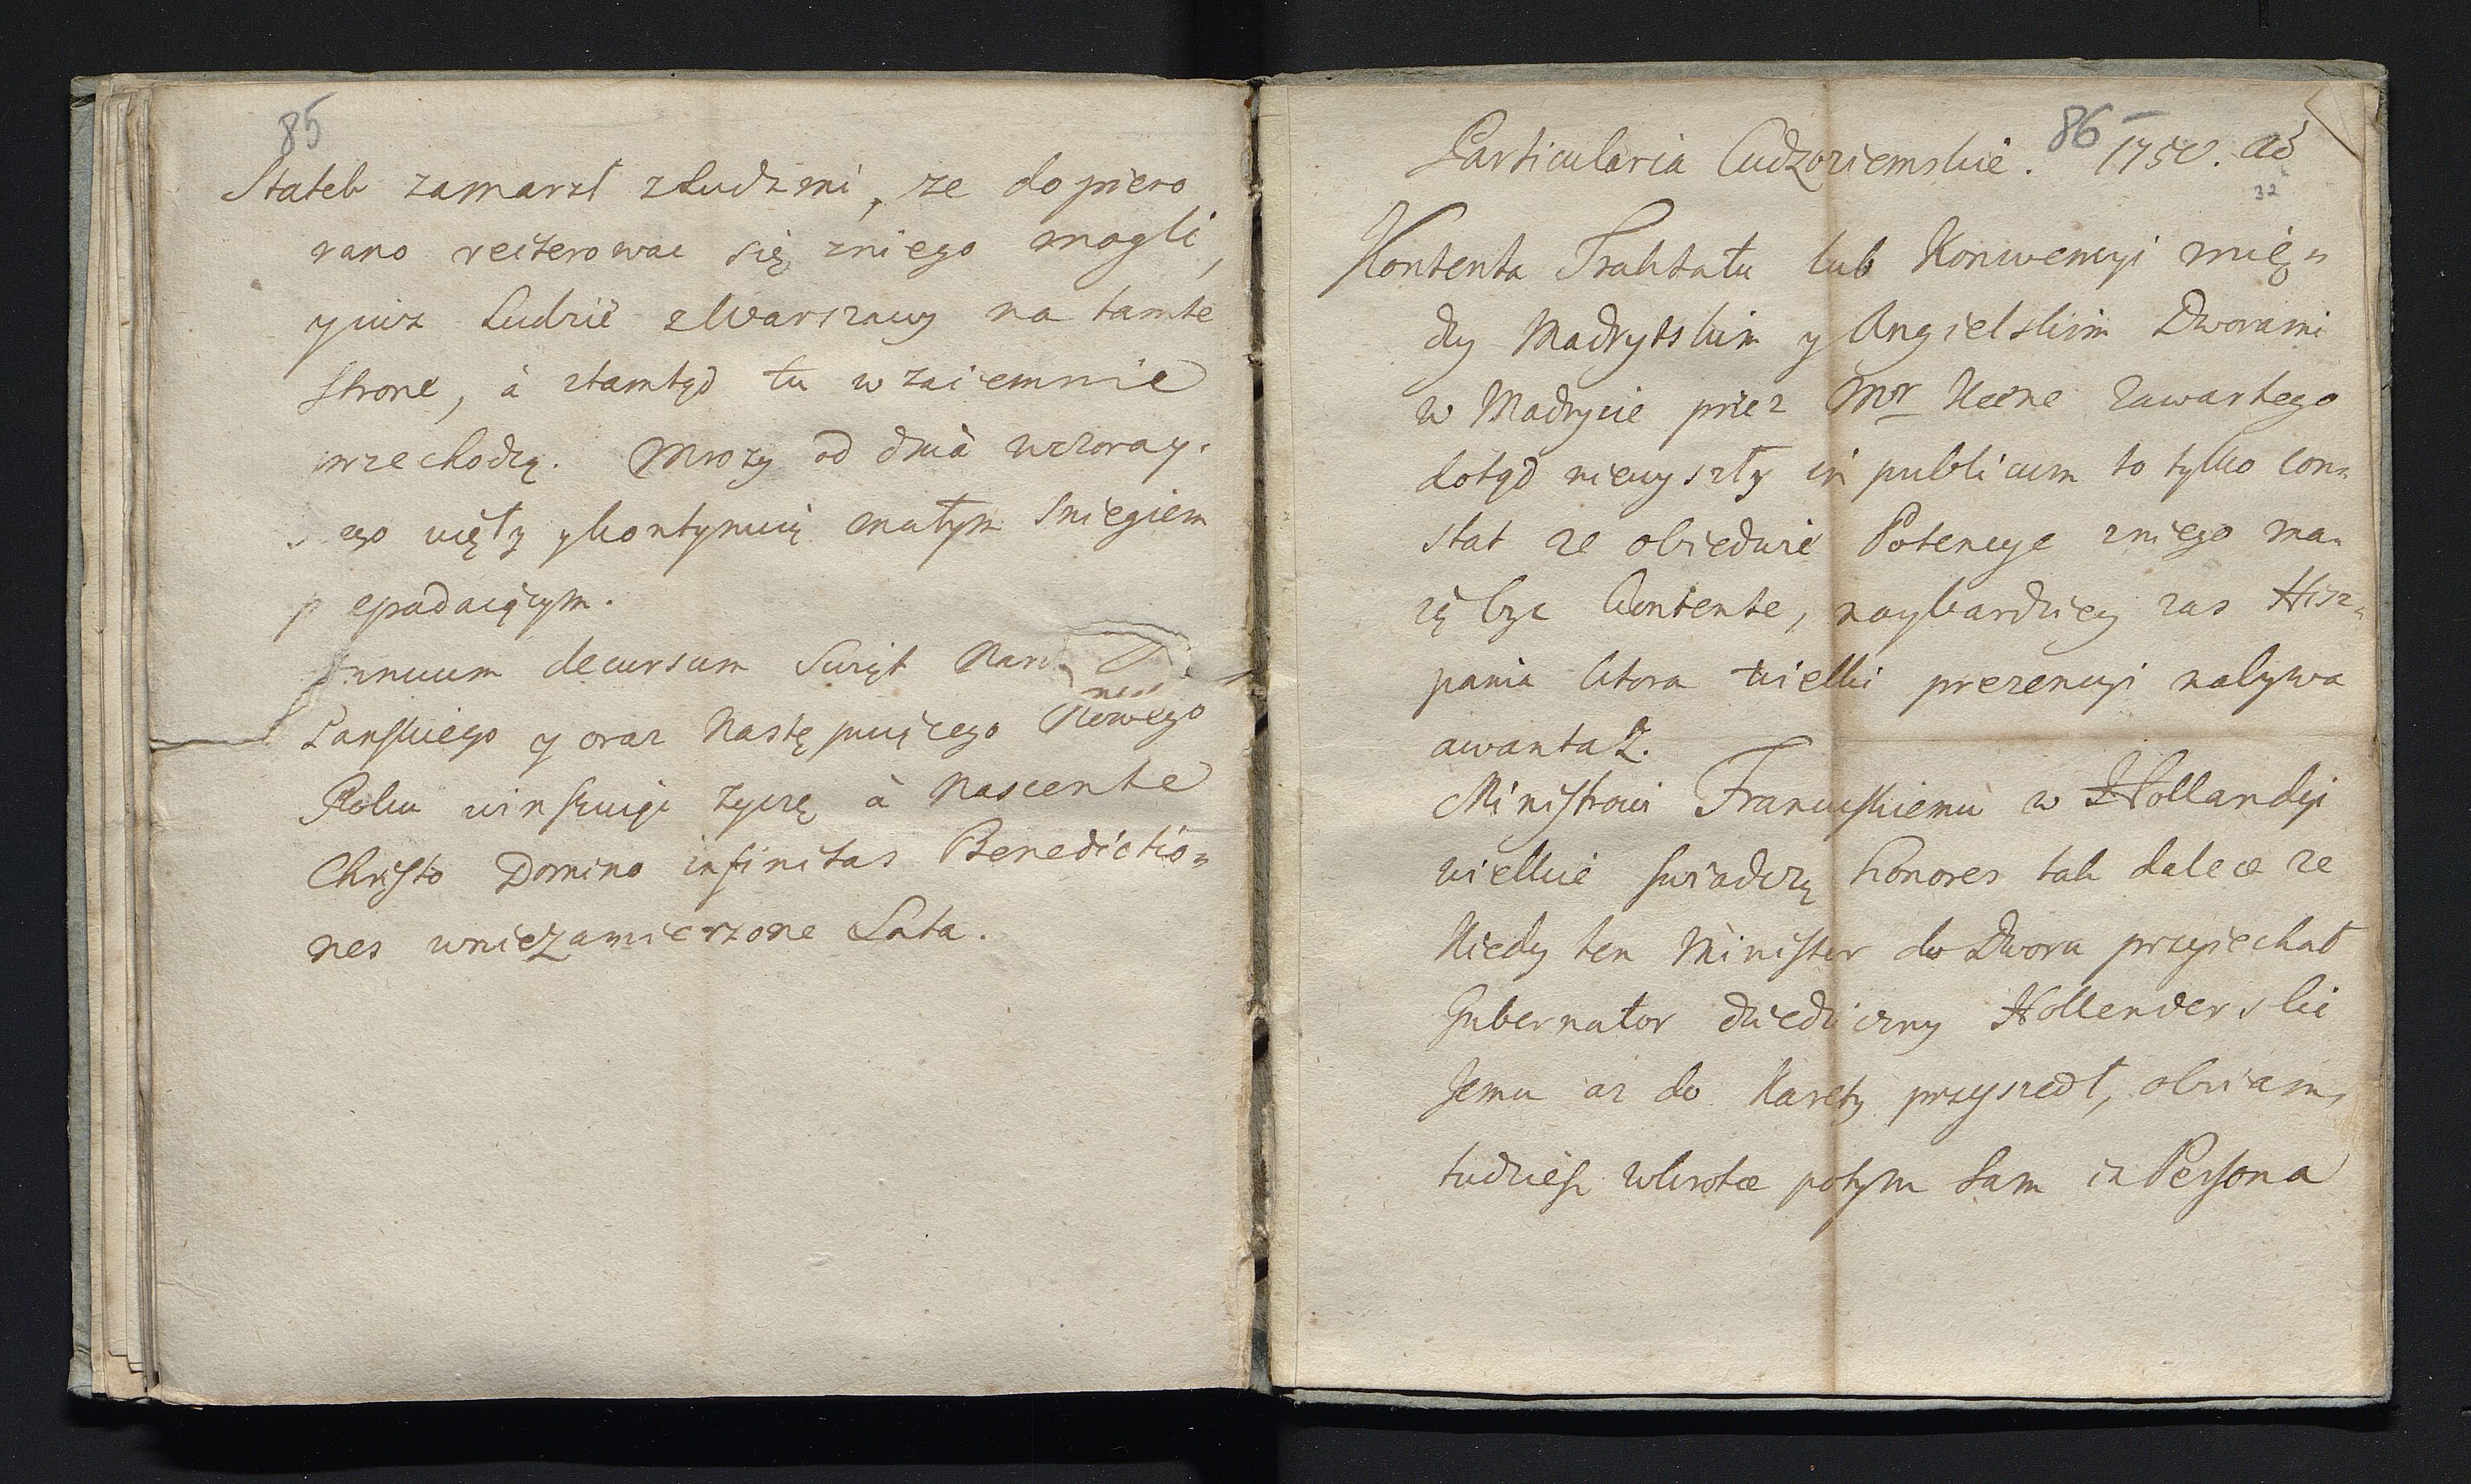 85
Statek zamarzł zludzmi, ze dopiero
rano reiterowac się zniego mogli,
yiusz Ludzie zWarszawy na tamte
strone, à ztamtąd tu wzaiemnie
przechodzą. Mrozy od dnià wczoray-
szego więtz ykontynuią małym sniegiem
p epadaiącym.
nnuum decursum Swiąt Naro
Panskiego y oraz Następuiącego Nowego
Roku winszuiąc zyczę à Nascente
Christo Domino infinitas Benedictio=
nes wniezamierzone Lata.
86
Particularia Cudzoziemskie. 1750. Aõ
32
Kontenta Traktatu lub Konwencyi mię=
dzy Madrytskim y Angielskim Dworami
w Madrycie przez Mr Keene zawartego
dotąd niewyszły in publicum to tylko con=
stat ze obiedwie Potencye zniego ma=
ią byc Contente, naybardziey zas Hisz=
pania ktora wielki prezencyi nabywa
awantaż.
Ministrowi Francuskiemu w Hollandyi
wielkie swiadczą honores tak dalece ze
Kiedy ten Minister do Dworu przyiechał
Gubernator dziedziczny Hollenderski
Jemu az do Karety przyszedł, obviam,
tudziesz wkrotce potym Sam in Persona